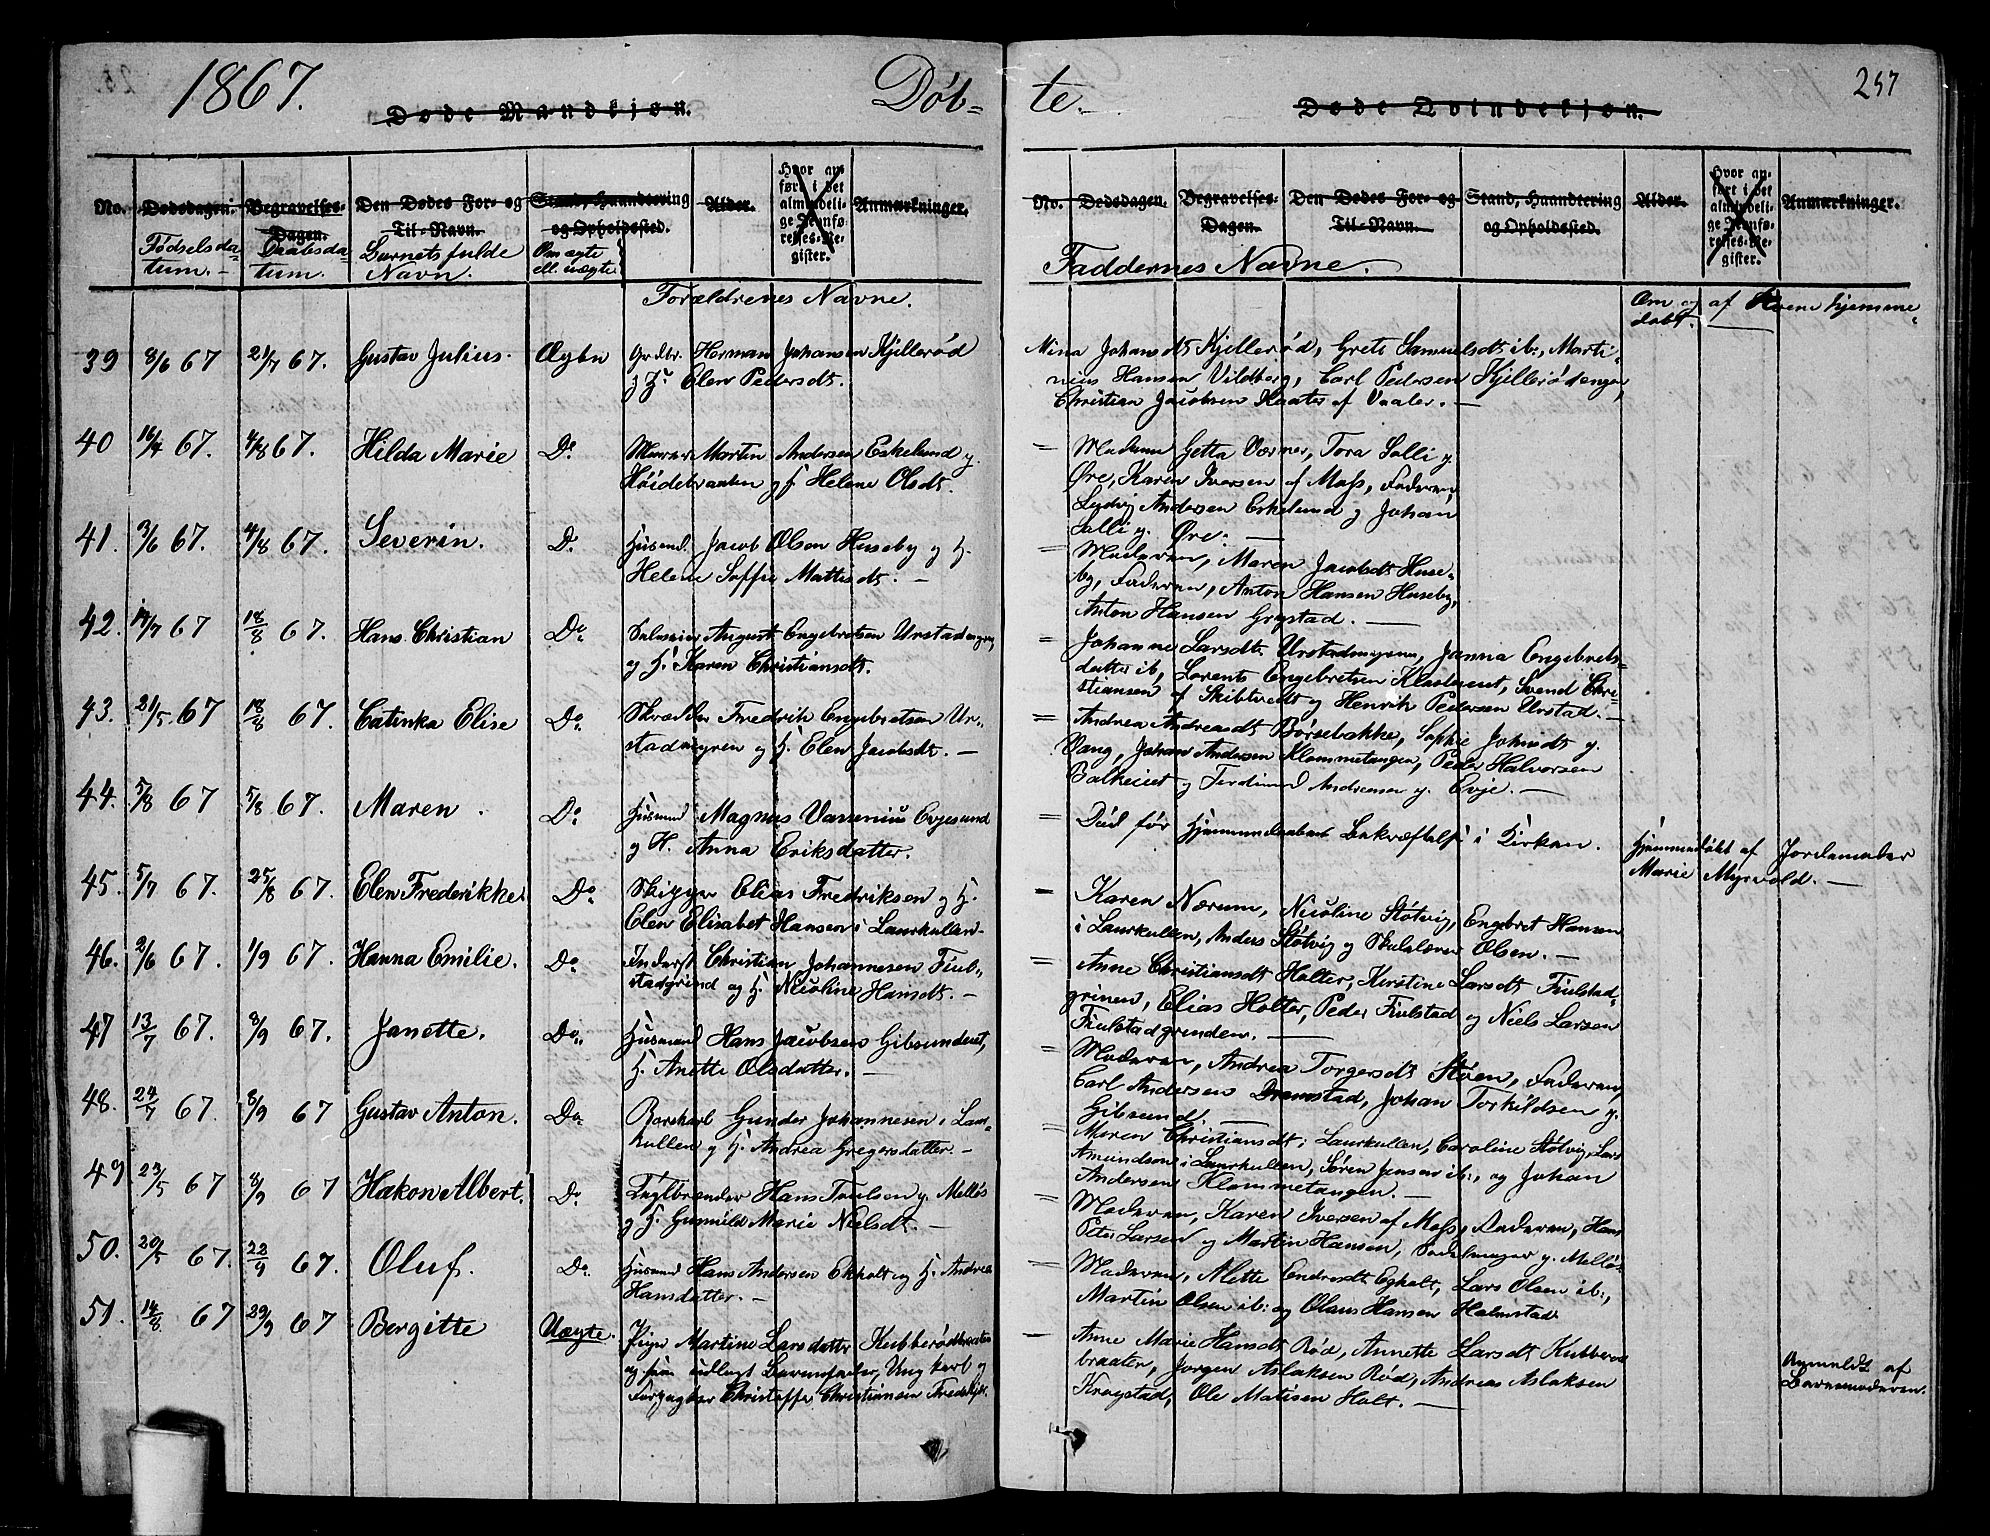 1867.
Døb-
Døde Mandkjøn.
No.
Dødsdagen.
Begravelses-
Dagen.
Den Dødes For- og
Til-Navn.
Stand, Haandtering
og Opholdssted.
Alder.
Hvor an-
ført i det
almindeli-
ge Jevnfø-
relses-Re-
gister.
Anmærkninger.
Fødselsda-
tum.
Daabsda-
tum.
Barnets fulde
Navn.
Om ægte
ell. uægte.
Forældrenes Navne.
39 8/6 67 21/7 67. Gustav Julius. Ægte Grdbr. Herman Johansen Kjellerød
og H. Elen Pedersdt.
40 16/4 67. 4/8 67. Hilda Marie Do Murer Martin Andersen Eskelund y.
Høidebraaten og H. Helene Olsdt.
41. 3/6 67. 4/8 67. Severin. Do Husmd. Jacob Olsen Huseby og H.
Helene Soffie Mattisdt. —
42. 14/7 67 18/8 67. Hans Christian Do August Engebretsen Urstadmyren
og H. Karen Christiansdt.
43. 21/5 67 18/8 67. Catinka Elise Do Skrædder Fredrik Engebretsen Ur-
stadmyren og H. Elen Jacobsdt. —
44. 5/8 67 5/8 67. Maren. Do Husmd Magnus Evjesund
og H. Anna Eriksdatter.
45. 5/7 67. 25/8 67. Elen Frederikke Do Skipper Elias Fredriksen og H.
Elen Elisabet Hansen i Laurkullen
46. 2/6 67. 1/9 67. Hanna Emilie. Do Inderst Christian Johannesen Fiul-
stadgrind og H. Nicoline Hansdt. —
47 13/7 67. 8/9 67. Janette. Do Husmand Hans Jacobsen Gibsundeiet,
H. Anette Olsdatter. —
48. 24/7 67. 8/9 67 Gustav Anton. Do Gunder Johannesen i Laur-
kullen og H. Andrea Gregersdatter. —
49 23/5 67 8/9 67 Hakon Albert. Do Teglbrænder Hans Paulsen y. Melløs
og H. Gunnild Marie Nielsdt. —
50. 20/5 67. 22/9 67. Oluf. Do Husmd Hans Andersen Ekholt og H. Andrea
Hansdatter. —
51. 14/8 67 29/9 67 Bergitte Uægte. Pige Martine Larsdatter Kubberødbraaten
og som udlagt Barnefader, Ungkarl og
Christoffer Christiansen
257
te.
Døde Qvindekjøn.
No.
Dødsdagen.
Begravelses-
Dagen.
Den Dødes For- og
Til-Navn.
Stand, Haandtering
og Opholdssted.
Alder.
Hvor an-
ført i det
almindeli-
ge Jevnfø-
relses-Re-
gister.
Anmærkninger.
Faddernes Navne.
Om og af Hvem hjemme-
døbt.
Nina Johansdt Kjellerød, Grete Samuelsdt ib:, Marti-
nius Hansen Vildberg, Carl Pedersen Kjellerødengen,
Christian Jacobsen Kaates af Vaaler. —
— Madame Getta Værner, Tora Solli y.
Øre, Karen Iversen af Moss, Faderen,
Ludvig Andersen Eskelund og Johan
Solli y. Øre. —
— Moderen, Maren Jacobsdt Huse-
by, Faderen, Anton Hansen Huseby,
Anton Hansen Grystad. —
— Johanne Larsdt. Urstadmyren, Janna Engebrets-
datter ib, Lorents Engebretsen Klostereiet, Svend Chri-
stiansen af Skibtvedt og Henrik Pedersen Urstad. —
— Andrea Andreasdt Børsebakke, Sophie Johnsdt y.
Vang, Johan Andersen Klommetangen, Peder Halvorsen
Balkeeiet og Ferdinand Andreasen y. Evje. —
— Død før Hjemmedaabens Bekræftelse i Kirken.
Hjemmedøbt af Jordemoder
Marie Myrvold. —
— Karen Nærum, Nicoline Støtvig, Engebret Hansen
i Laurkullen, Anders Støtvig og Skolelærer Olsen. —
— Anne Christiansdt Holter, Kirstine Larsdt Fiulstad-
grinen, Elias Holter, Peder Fiulstad og Niels Larsen
Fiulstadgrinden. —
— Moderen, Andrea Torgersdt Støen, Faderen,
Carl Andersen Dramstad, Johan Torkildsen y.
Gibsund. —
— Maren Christiansdt i Laurkullen, Caroline Støtvig, Lars
Amundsen i Laurkullen, Søren Jensen ib:, og Johan
Andersen Klommetangen. —
— Moderen, Karen Iversen af Moss, Faderen, Hans
Peter Larsen og Martin Hansen, y. Melløs
— Moderen, Mette Endresdt Egholt, Lars Olsen ib:,
Martin Olsen ib: og Olaus Hansen Halmstad
— Anne Marie Hansdt Rød, Annette Larsdt Kubberød
braaten, Jørgen Aslaksen Rød, Andreas Aslaksen
Krogstad, Ole Matisen Holt. —
Anmeldt af
Barnemoderen.